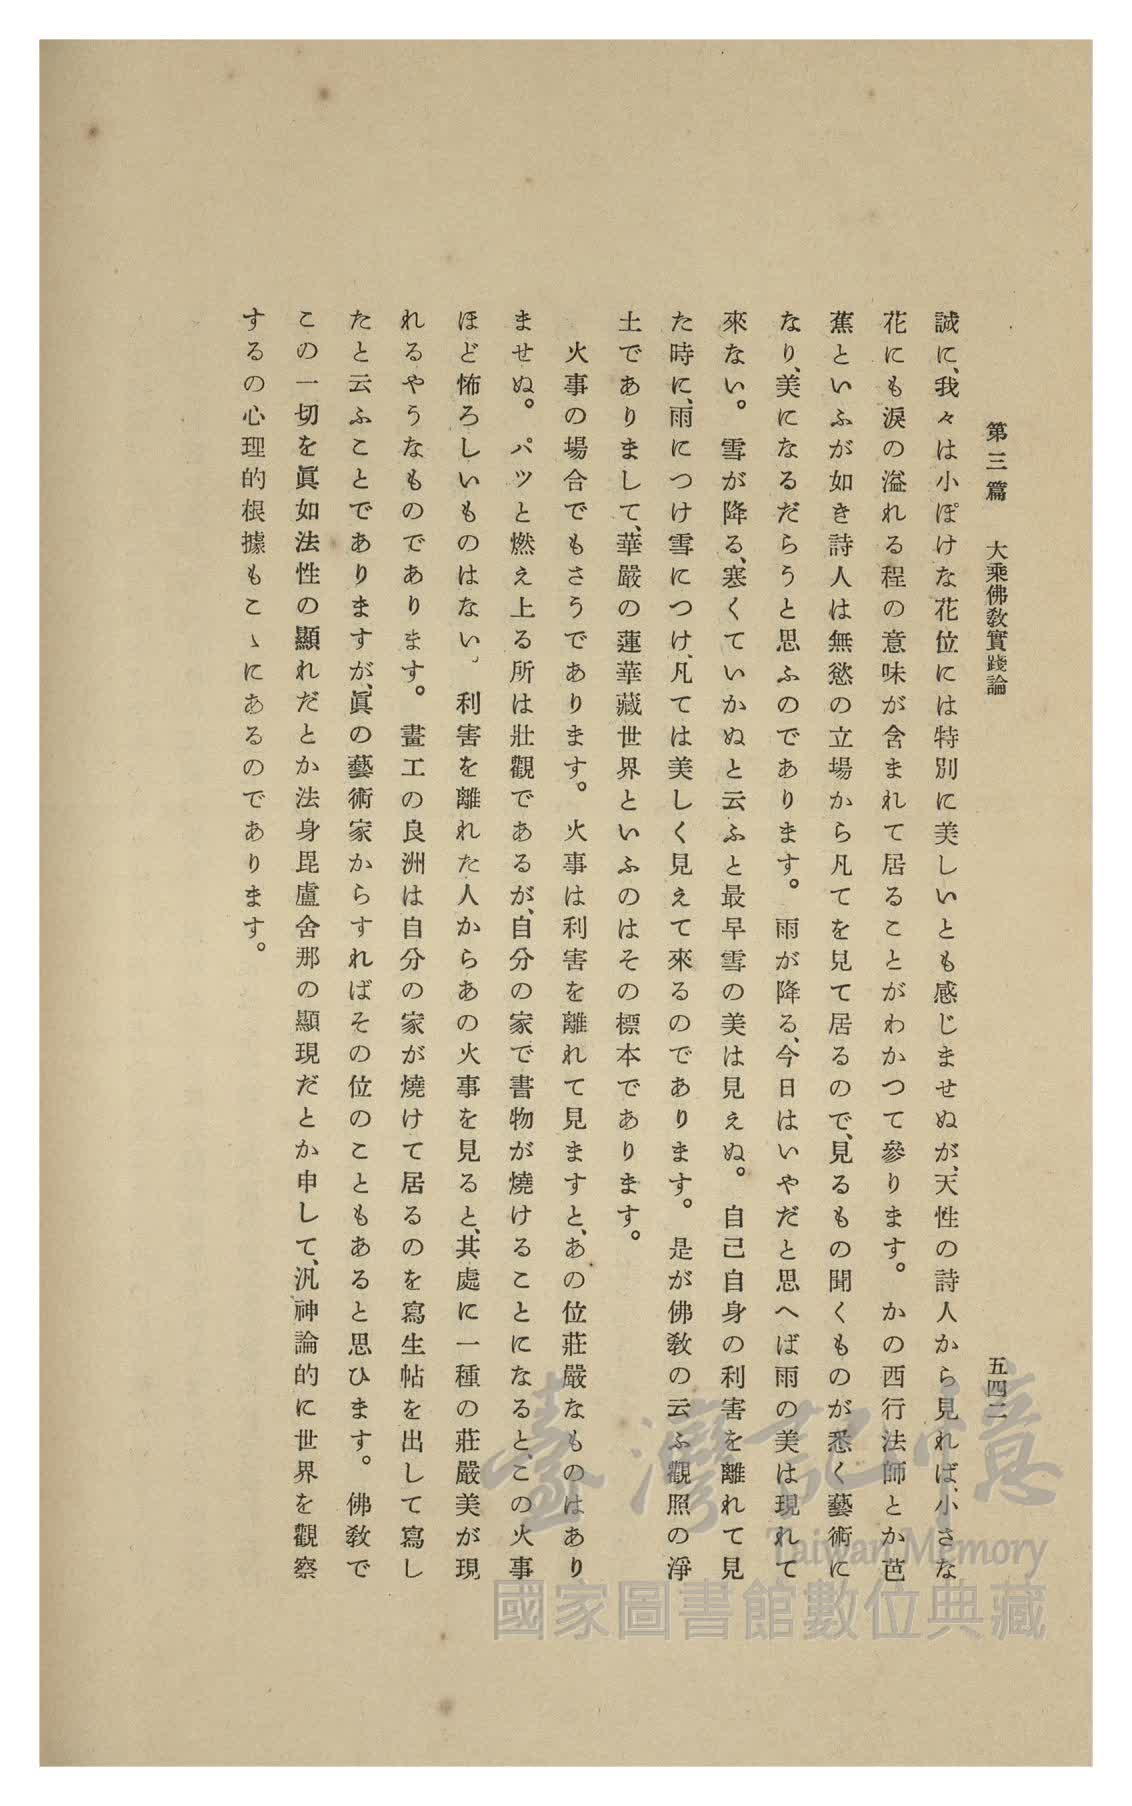 第三篇　大乘佛敎實踐論
五四二
誠に、我々は小ぽけな花位には特別に美しいとも感じませぬが、天性の詩人から見れば、小さな
花にも淚の溢れる程の意味が含まれて居ることがわかつて參ります。かの西行法師とか芭
蕉といふが如き詩人は無慾の立場から凡てを見て居るので、見るもの聞くものが悉く藝術に
なり、美になるだらうと思ふのであります。雨が降る、今日はいやだと思へば雨の美は現れて
來ない。雪が降る、寒くていかぬと云ふと最早雪の美は見えぬ。自己自身の利害を離れて見
た時に、雨につけ雪につけ、凡ては美しく見えて來るのであります。是が佛敎の云ふ觀照の淨
土でありまして、華嚴の蓮華藏世界といふのはその標本であります。
　火事の場合でもさうであります。火事は利害を離れて見ますと、あの位莊嚴なものはあり
ませぬ。パツと燃え上る所は壯觀であるが、自分の家で書物が燒けることになると、この火事
ほど怖ろしいものはない。利害を離れた人からあの火事を見ると、其處に一種の莊嚴美が現
れるやうなものであります。畫工の良洲は自分の家が燒けて居るのを寫生帖を出して寫し
たと云ふことでありますが、眞の藝術家からすればその位のこともあると思ひます。佛敎で
この一切を眞如法性の顯れだとか法身毘盧舍那の顯現だとか申して、汎神論的に世界を觀察
するの心理的根據もこゝにあるのであります。
臺灣記憶
Taiwan Memory
國家圖書館數位典藏